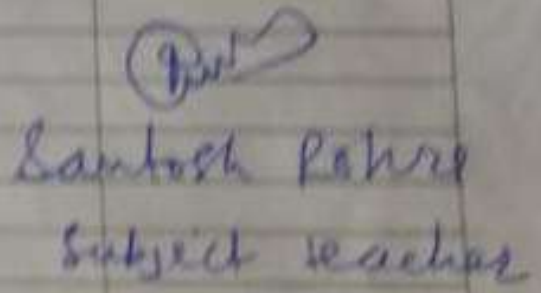 Santosh Rohre
Subject teacher